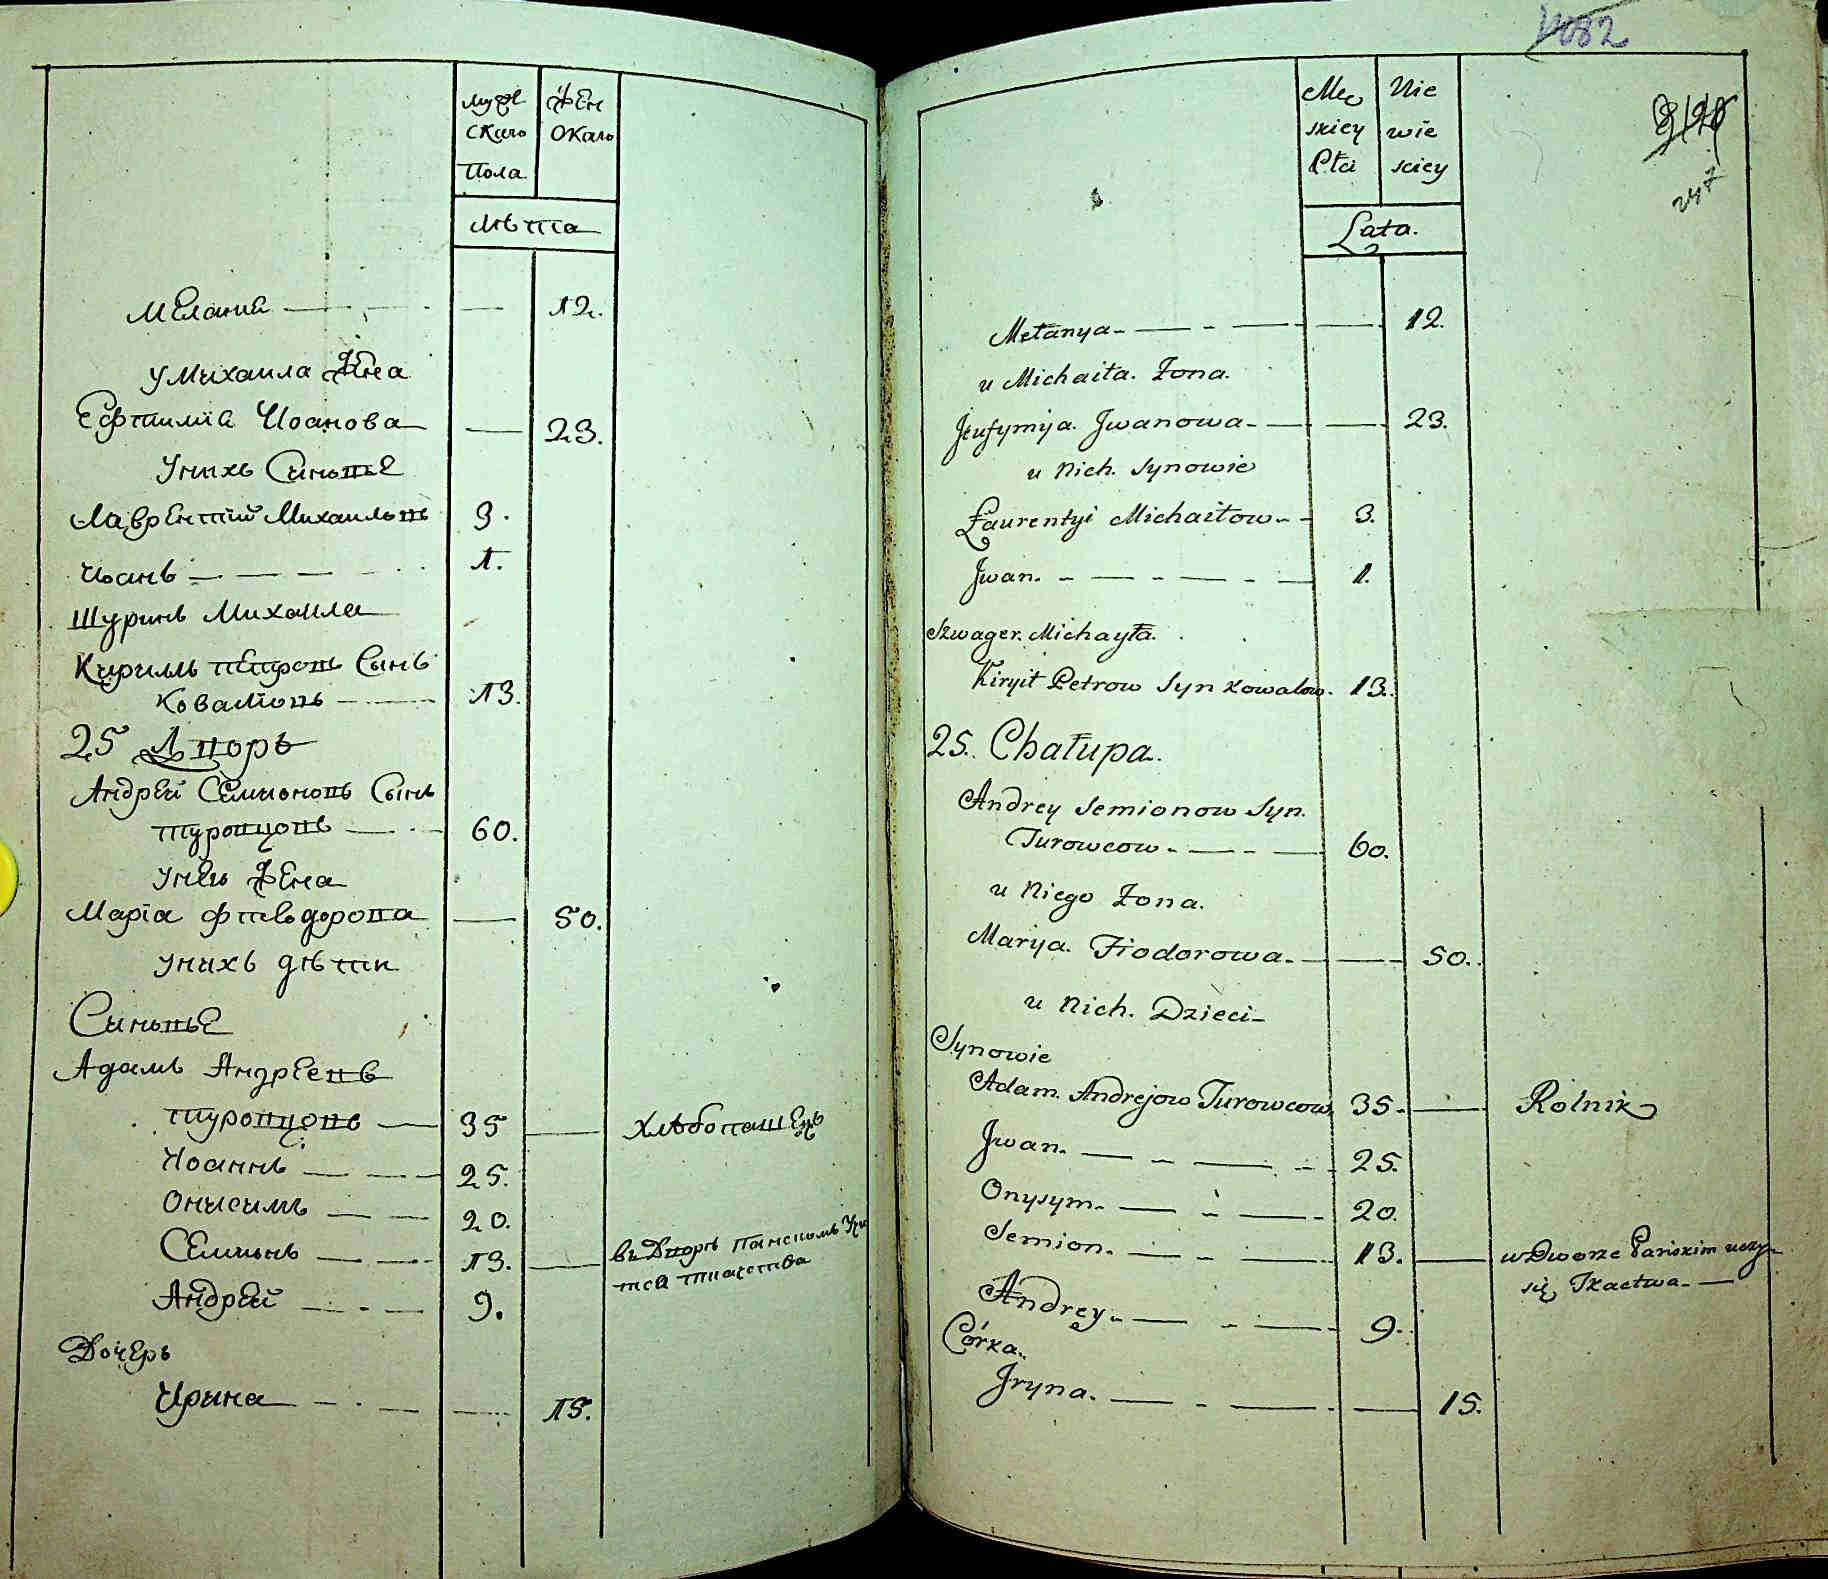 мужескаго пола
женскаго
лѣта
Меланиѣ — 12.
у Михаила Жена
Ефтимиѣ Иоанова — 23.
У нихъ Сыновье
Лаврентий Михаиловъ 3.
Иоанъ — 1.
Шуринъ Михаила
Кириллъ Петровъ Сынъ
Ковалиовъ — 13.
25 Дворъ
Андрей Семионовъ Сынъ
Туровцовъ — 60.
У нево Жена
Мариа Фиеодорова — 50.
У нихъ дѣти
Сыновье
Адамъ Андреевъ
Туровцовъ — 35 — хлѣбопашецъ
Иоаннъ — 25.
Онисимъ — 20.
Семионъ — 13. — въ Дворѣ панскомъ Учи
тса ткачества
Андрей — 9.
Дочерь
Ирина — 15.
1082
247
Męskiey Płci
Niewieskiey
Lata.
Mełanya — 12.
u Michaiła. Żona.
Jeufymija. Jwanowa — 23.
u Nich. Synowie
Łaurentyi Michaiłow — 3.
Jwan. — 1.
Szwager. Michayła.
Kiryił Petrow Syn Kowalow. 13.
25. Chałupa.
Andrey Semionow Syn.
Turowcow — 60.
u Niego Żona.
Marya. Fiodorowa — 50.
u Nich. Dzieci —
Synowie
Adam. Andrejow Turowcow 35 — Rolnik
Jwan. — 25.
Onysym — 20.
Semion. — 13. — w Dworze Pańskim uczy
się Tkactwa —
Andrey — 9.
Córka.
Jryna. — 15.